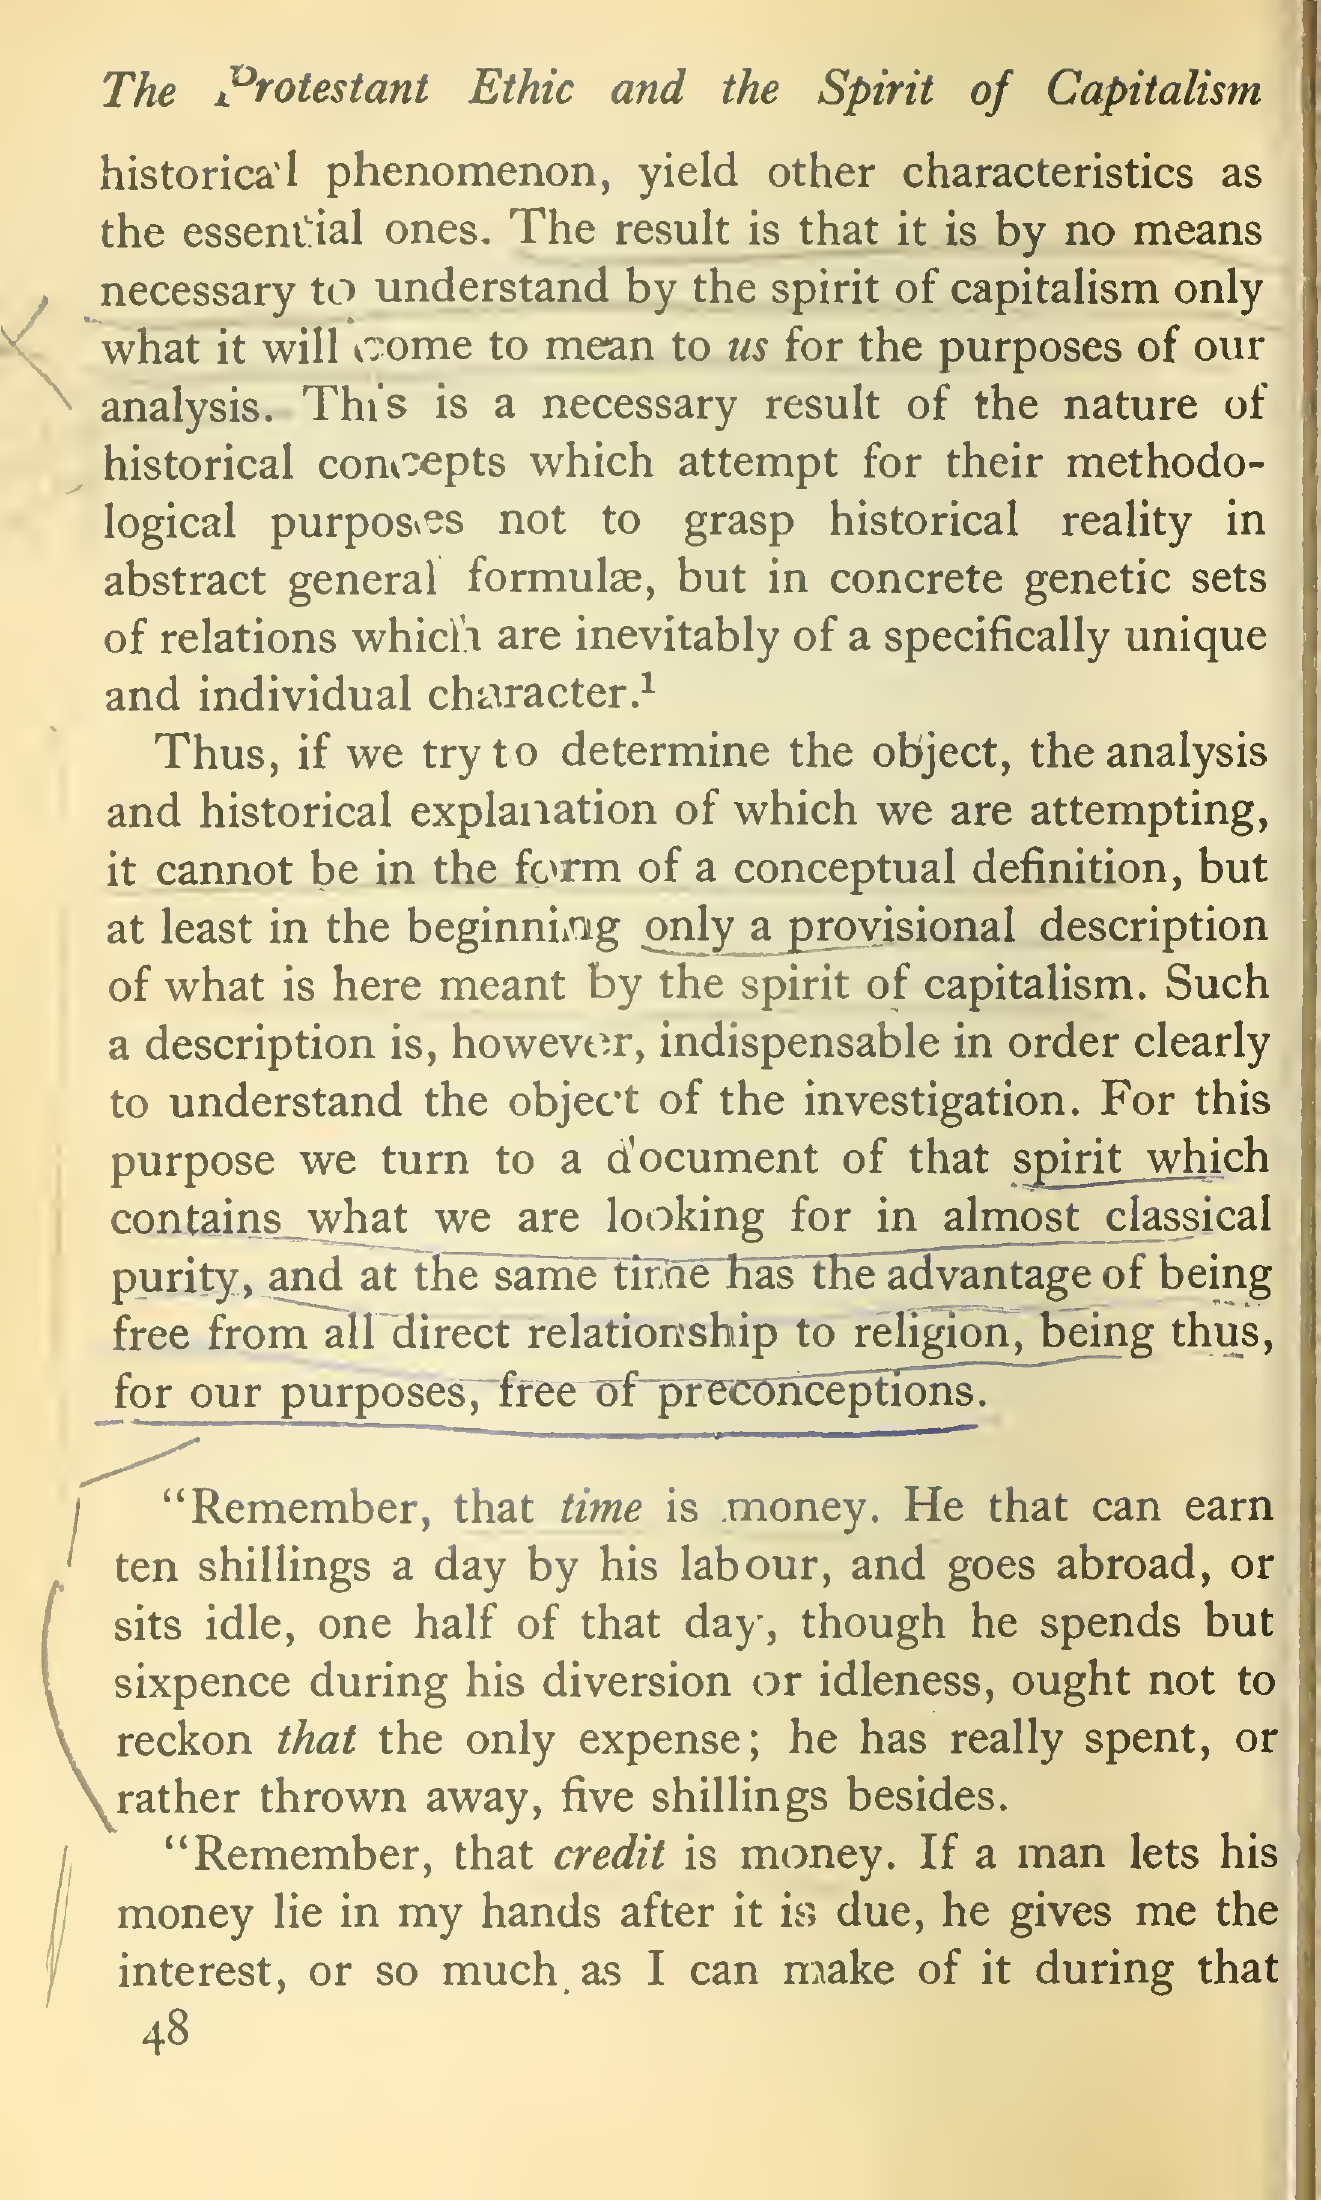 The Protestant Ethic and the Spirit of Capitalism
historical phenomenon, yield other characteristics as
the essential ones. The result is that it is by no means
necessary to understand by the spirit of capitalism only
what it will come to mean to us for the purposes of our
analysis. This is a necessary result of the nature of
historical concepts which attempt for their methodo-
logical purposes not to grasp historical reality in
abstract general formulæ, but in concrete genetic sets
of relations which are inevitably of a specifically unique
and individual character.¹
Thus, if we try to determine the object, the analysis
and historical explanation of which we are attempting,
it cannot be in the form of a conceptual definition, but
at least in the beginning only a provisional description
of what is here meant by the spirit of capitalism. Such
a description is, however, indispensable in order clearly
to understand the object of the investigation. For this
purpose we turn to a document of that spirit which
contains what we are looking for in almost classical
purity, and at the same time has the advantage of being
free from all direct relationship to religion, being thus,
for our purposes, free of preconceptions.
“Remember, that time is money. He that can earn
ten shillings a day by his labour, and goes abroad, or
sits idle, one half of that day, though he spends but
sixpence during his diversion or idleness, ought not to
reckon that the only expense; he has really spent, or
rather thrown away, five shillings besides.
“Remember, that credit is money. If a man lets his
money lie in my hands after it is due, he gives me the
interest, or so much as I can make of it during that
48